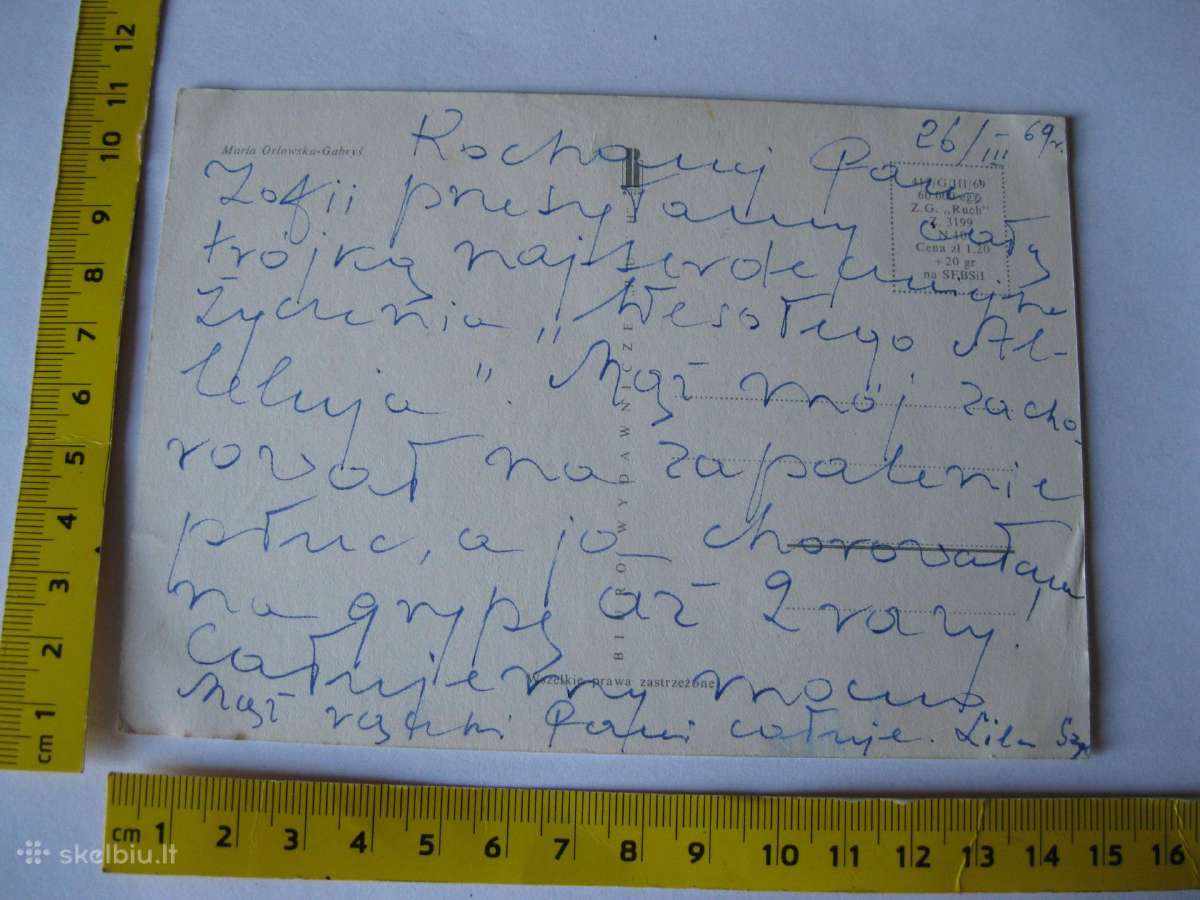 26/III 69r.
Maria Orłowska-Gabryś
Kochanej Pani
Zofii przesyłamy całą
trójką najserdeczniejsze
życzenia „Wesołego Al-
leluja". Mąż mój zacho-
rował na zapalenie
płuc, a ja chorowałam
na grypę aż 2 razy.
Całujemy mocno
Mąż rączki Pani całuje. Lila
60 000 egz.
Z.G. „Ruch"
Z. 3199
Cena zł 1.20
+20 gr
na SFBSiI
BIURO WYDAWNICZE
Wszelkie prawa zastrzeżone
cm 1 2 3 4 5 6 7 8 9 10 11 12
cm 1 2 3 4 5 6 7 8 9 10 11 12 13 14 15 16
skelbiu.lt